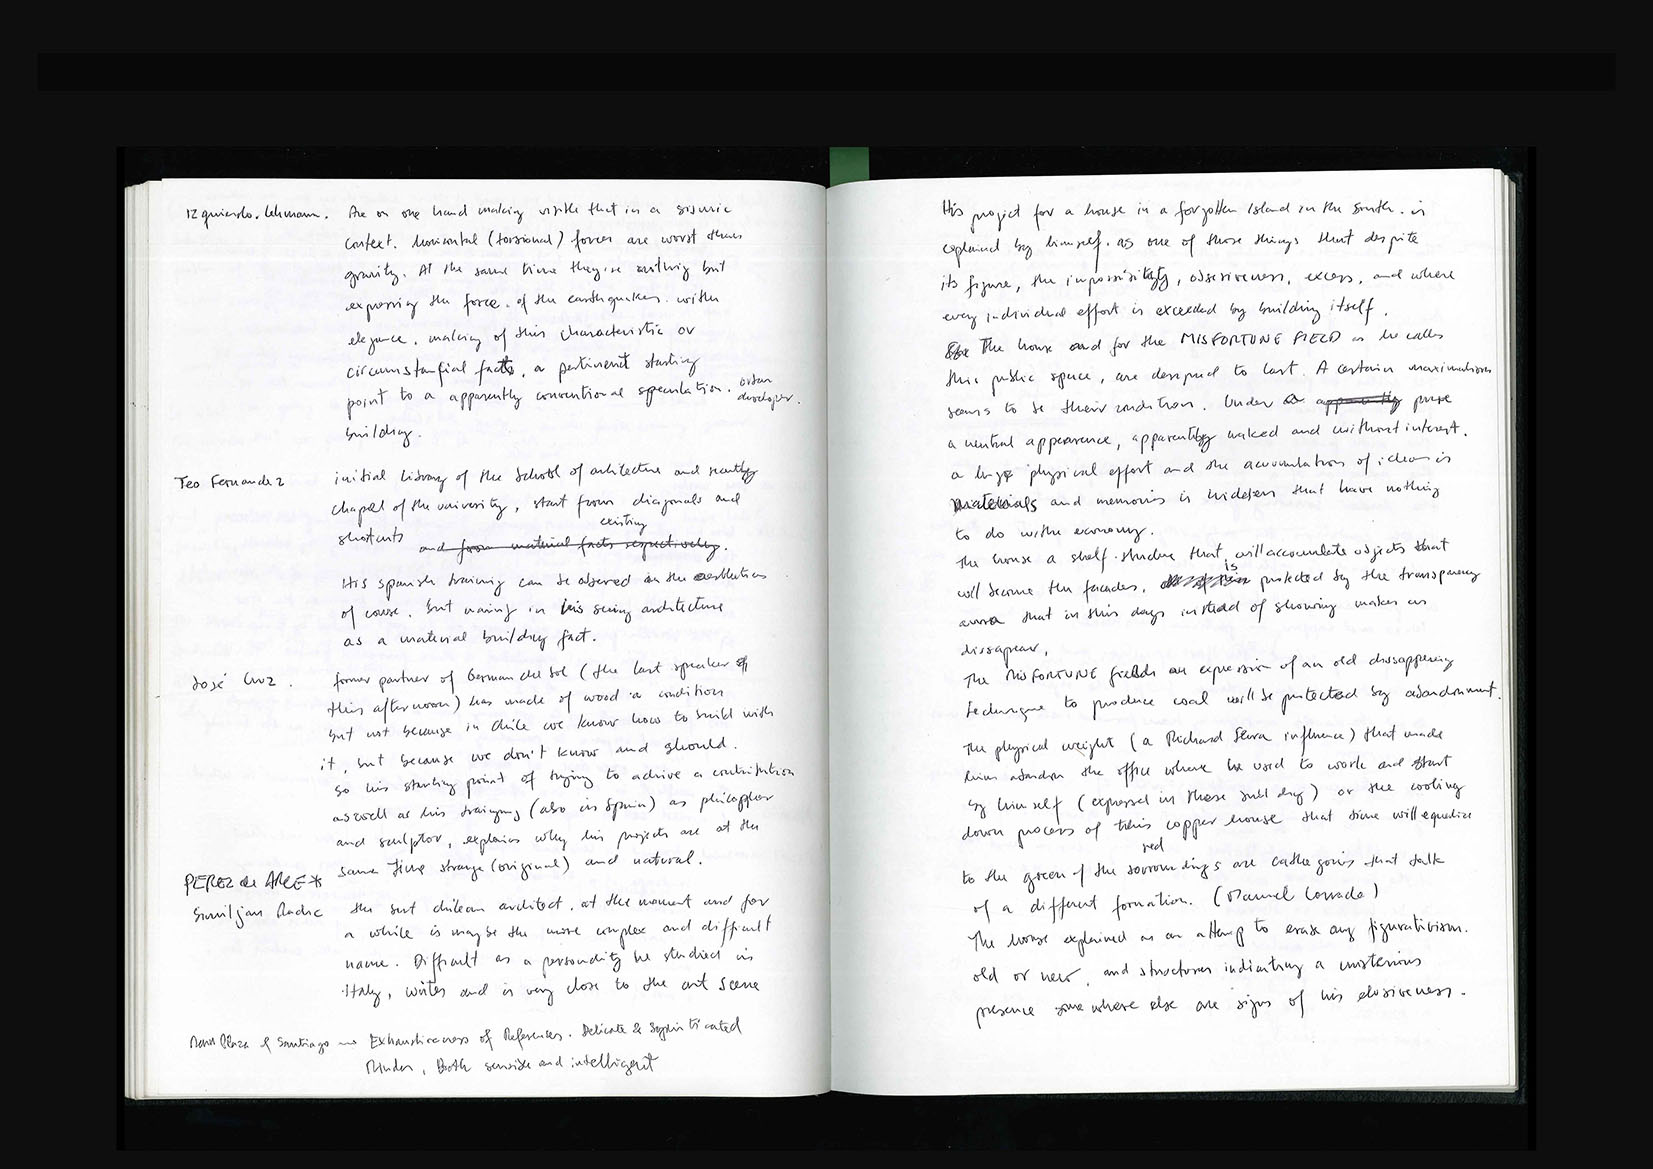 Izquierdo. Lehmann. Are on one hand making visible that in a sismic
context. horizontal (torsional) forces are worst than
gravity. At the same time they're nothing but
expressing the force. of the earthquakes. with
elegance. making of this characteristic or
circumstantial facts, a pertinent starting
point to a apparently conventional speculation. urban developer.
building.
Teo Fernandez initial library of the School of architecture and recently
chapel of the university, start from diagonals and
existing
shortcuts and from material facts respectively.
His spanish training can be observed in the aesthetics
of course. but mainly in his seeing architecture
as a material building fact.
José Cruz. former partner of German del Sol (the last speaker of
this afternoon) has made of wood a condition
but not because in chile we know how to build with
it, but because we don't know and should.
So his starting point of trying to achive a contribution
aswell as his training (also in Spain) as philosopher
and sculptor, explains why his projects are at the
same time strange (original) and natural.
PEREZ de ARCE *
Smiljan Radic the best chilean architect. at the moment and for
a while is maybe the more complex and difficult
name. Difficult as a personality he studied in
Italy, writes and is very close to the art scene
Plaza of Santiago Exhaustiveness of References. Delicate & Sophisticated
Both sensible and intelligent
His project for a house in a forgotten island in the South. is
explained by himself. as one of those things that despite
its figure, the impossibility, obsesiveness, excess, and where
every individual effort is exceeded by building itself.
The house and for the MISFORTUNE FIELD as he calls
this public space, are designed to last. A certain maximalism
seems to be their condition. Under a apparently pure
a neutral appearence, apparently naked and without interest.
a huge physical effort and the accumulation of ideas in
materials and memories is hidden that have nothing
to do with economy.
The house a shelf-structure that will accumulate objects that
is
will become the facades, protected by the transparency
aura that in this days instead of showing makes us
dissapear,
The MISFORTUNE fields an expression of an old dissappearing
technique to produce coal will be protected by abandonment.
The physical weight (a Richard Serra influence) that made
him abandon the office where he used to work and start
by himself (expressed in these building) or the cooling
down process of this copper house that time will equalize
red
to the green of the sorroundings are cathegories that talk
of a different formation. (Manuel Corrada)
The house explained as an attemp to erase any figurativism.
old or new, and structures indicating a misterious
presence somewhere else are signs of his elusiveness.